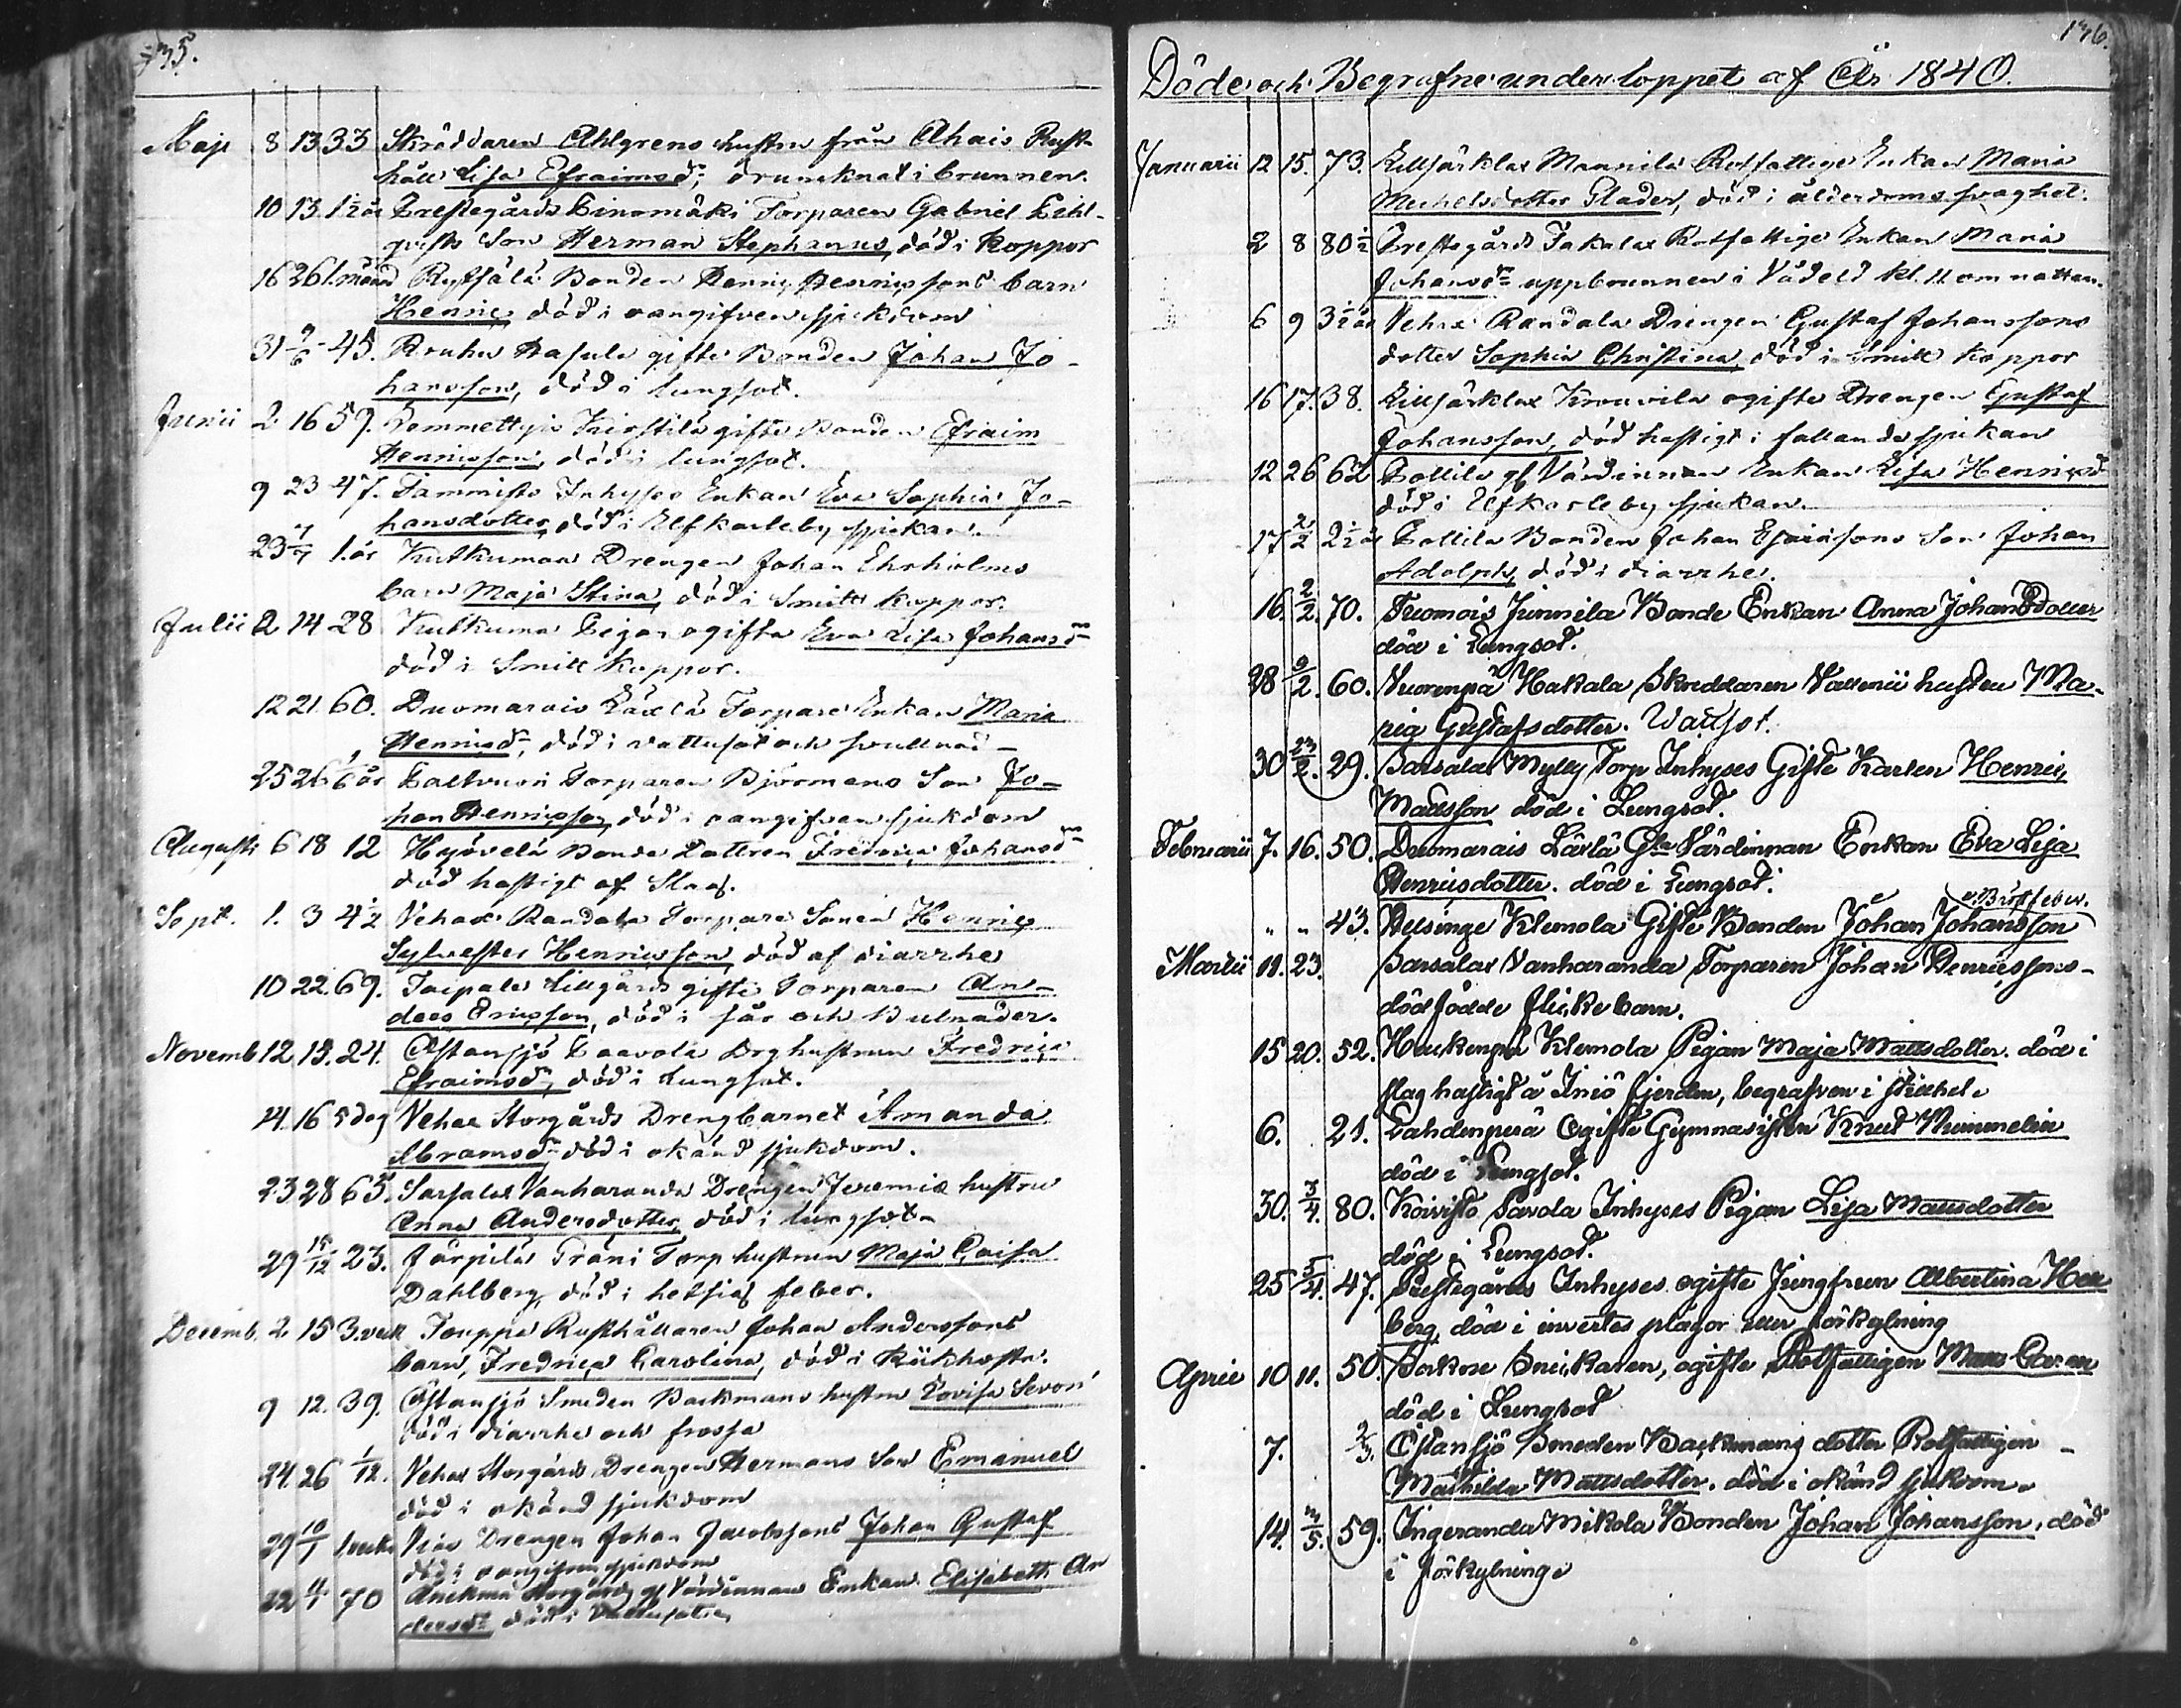 135.
Maji 8 13 33 Skräddaren Ahlgrens hustru från Ahais Rust-
håll Lisa Efraimsd:r, drunknat i brunnen.
10 13. 1½ år Prestegårds Torparen Gabriel
Son Herman Stephanus, död i Koppor
16 26 1. månad Bonden Henric Henricssons barn
Henric, död i oangifven sjukdom
31 9/6 45. gifte Bonden Johan Jo-
hansson, död i lungsot.
Junii 2 16 59. gifte Bonden Efraim
Henricsson, död i lungsot.
9 23 47. Tammisto Inhyses Enkan Eva Sophia Jo-
hansdotter, död i Elfkarleby sjukan.
23 1. år Kutkuman Drengen Johan Ehrholms
barn Maja Stina, död i Smitt koppor.
Julii 2 14 28 Kutkuma Pigan ogifta Eva Lisa Johansd:r
död i Smitt koppor.
12 21. 60. Duomarais Läxlä Torpare Enkan Maria
Henricsd:r, död i vattusot och svullnad
25 26 1/6 år Torparen Björmans Son Jo-
han Henricsson, död i oangifven sjukdom
Augusti 6 18 12 Hyövelä Bonde Dottren Fredrica Johansd:r
död hastigt af Slag.
Sept. 1. 3 4½ Vehax Randala Torpare Sonen Henric
Sylvester Henricsson, död af diarrhe
10 22. 69. Taipale Lillgårds gifte Torparen An-
ders Ericsson, död i sår och bulnader.
Novemb 12. 19. 24. Östansjö Paavola Drg hustrun Fredrica
Efraimsd:r, död i lungsot.
14. 16 5 dag Vehax Storgårds Drengbarnet Amanda
Abramsd:r död i okänd sjukdom.
23 28 65. Sarsalax Vanharanda Drengen Jeremia hustru
Anna Andersdotter, död i lungsot
29 15/12 23. Järpilä Träni Torp hustrun Maja Caisa
Dahlberg, död i hetsig feber.
Decemb. 2. 15 3. veck Touppa Rusthållaren Johan Anderssons
barn, Fredrica Carolina, död i Kikhosta.
9 12. 39. Östansjö Smeden Backmans hustru Lovisa Sevon
död i diarrhe och frossa
24. 26 1/12. Vehax Storgårds Drengen Hermans Son Emanuel
död i okänd sjukdom
29 10/1 Drengen Johan Jacobssons Johan Gustaf
död i oangifven sjukdom
22 4/1 70 Storgårds gl Värdinnan Enkan Elisabeth An
dersd:r död i Vattusoten
136.
Döde och Begrafne under loppet af År 1840.
Januarii 12 15. 73. Lillsärklax Mannila Rotfattige Enkan Maria
Michelsdotter Glader, död i ålderdoms svaghet.
2 8 80½ Prestegårds Jakalax Rotfattige Enkan Maria
Johansd:r uppbrunnen i Vådeld kl. 11 om natten.
6 9 3½ år Vehax Randala Drengen Gustaf Johanssons
dotter Sophia Christina, död i Smitt koppor
16 17. 38. Lillsärklax Krouvila ogifte Drengen Gustaf
Johansson, död hastigt i fallande sjukan
12 26 62 Pollila gl Värdinnan Enkan Lisa Henricsd:r
död i Elfkarleby sjukan.
17 2/2 2½ år Pollila Bonden Johan Esaiasons Son Johan
Adolph, död i diarrhe.
16. 2/2. 70. Tuomois Junnila Bonde Enkan Anna Johansdotter
död i Lungsot.
28 9/2. 60. Vuorenpä Hakala Skreddaren hustru Ma-
ria Gustafsdotter. Wattsot.
30 23/2. 29. Sarsalax Mylly Torp Inhyses Gifte Karlen Henric
Mattsson död i Lungsot.
Februarii 7. 16. 50. Duomarais Läxlä Gla Värdinnan Enkan Eva Lisa
Henricsdotter. död i Lungsot.
" " 43. Helsinge Klemola Gifte Bonden Johan Johansson
i Bröstfeber.
Martii 11. 23. Sarsalax Vanharanda Torparen Johan Henricssons
dödfödde flickebarn.
15 20. 52. Haukenpä Klemola Pigan Maja Mattsdotter. död i
slag hastigt å Iniö fjerden, begrafven i
6. 21. Lahdenperä Ogifte Gymnasisten Knut Mummelin
död i Lungsot.
30. 3/4. 80. Koivisto Savola Inhyses Pigan Lisa Mattsdotter
död i Lungsot.
25 5/4. 47. Prestegårds Inhyses ogifte Jungfrun Albertina Hell
berg, död i invertes plågor eller förkylning
April 10 11. 50. Snickaren, ogifte Rotfattigen
död i Lungsot
7. 2/3. Östansjö Smeden Backmans dotter Rotfattigen
Mathilda Mattsdotter. död i okänd sjukdom.
14. 3/5. 59. Ingeranda Mikola Bonden Johan Johansson, död
i förkylning